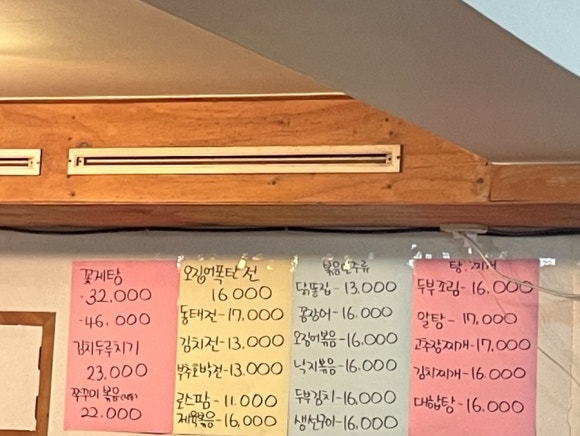 꽃게탕
-32.000
-46.000
김치두루치기
23.000
쭈꾸미 볶음
22.000
오징어폭탄 전
16000
동태전-17,000
김치전-13.000
부추호박전-13.000
로스팜-11.000
제육볶음-16,000
볶음 안주류
닭똥집-13.000
꽁장어-16.000
오징어볶음-16.000
낙지볶음-16.000
두부김치-16.000
생선구이-16.000
탕.찌개
두부조림-16.000
알탕-17,000
고추장찌개-17.000
김치찌개-16.000
대합탕-16.000